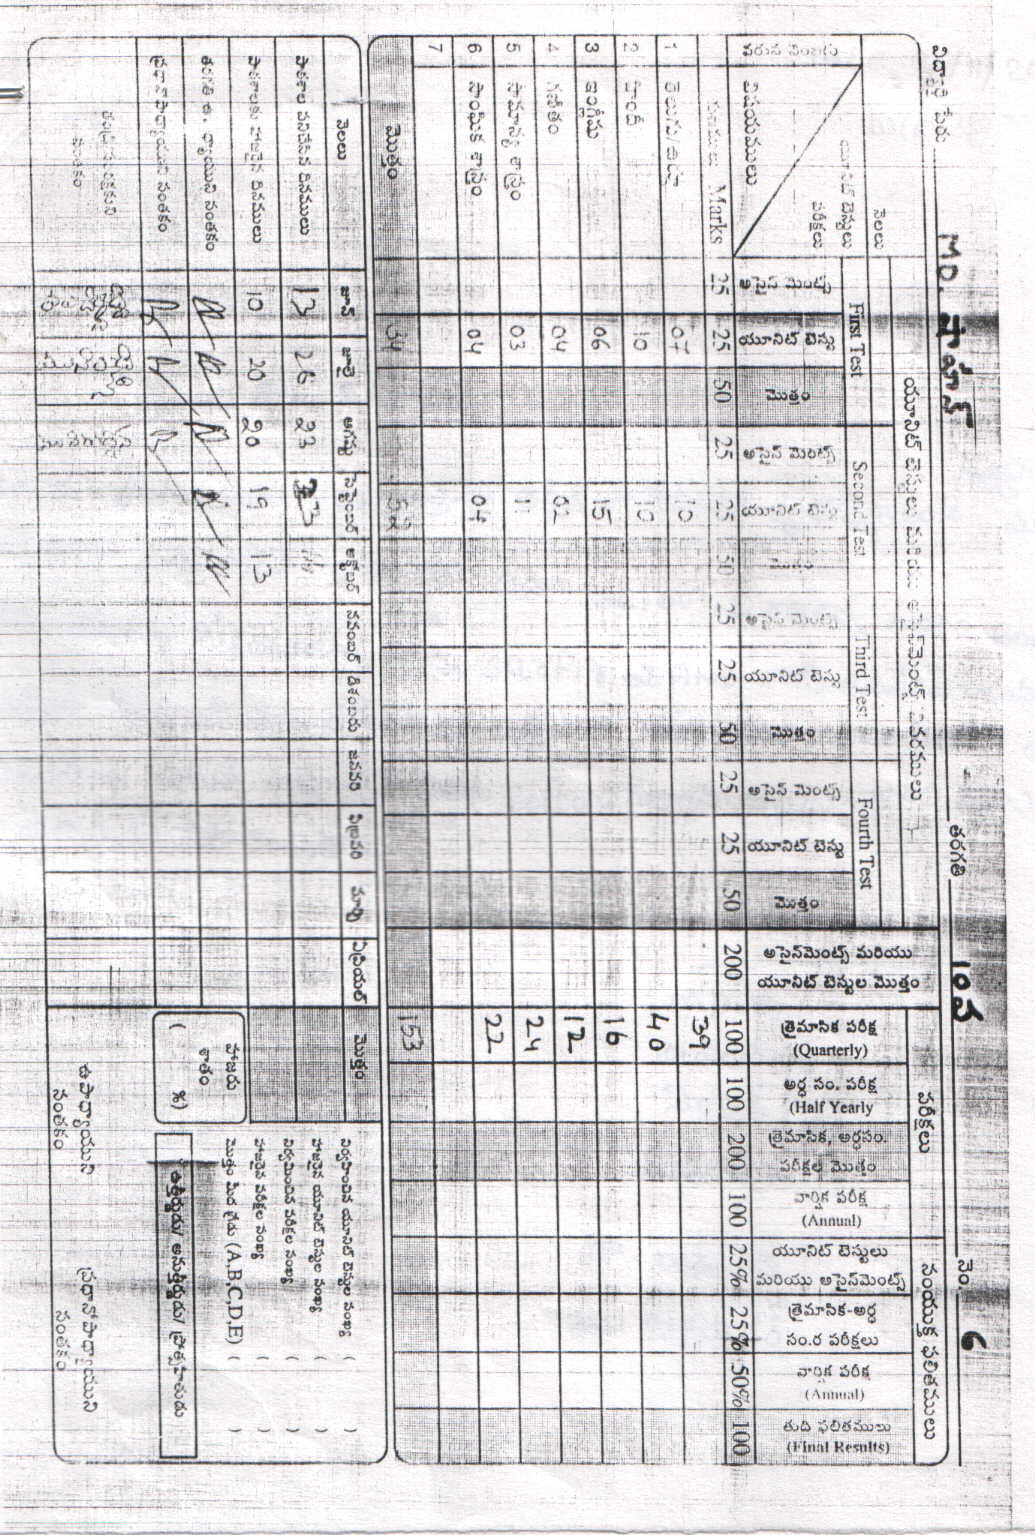 విద్యార్థి పేరు MD. షాహీన్ తరగతి 10వ నం. 6
యూనిట్ టెస్టులు మరియు అసైన్‌మెంట్స్ వివరములు పరీక్షలు సంయుక్త ఫలితములు
నెలలు First Test Second Test Third Test Fourth Test
యూనిట్ టెస్టులు
పరీక్షలు
వరుస నెంబరు విషయములు అసైన్ మెంట్స్ యూనిట్ టెస్టు మొత్తం అసైన్ మెంట్స్ యూనిట్ టెస్టు మొత్తం అసైన్ మెంట్స్ యూనిట్ టెస్టు మొత్తం అసైన్ మెంట్స్ యూనిట్ టెస్టు మొత్తం అసైన్‌మెంట్స్ మరియు యూనిట్ టెస్టుల మొత్తం త్రైమాసిక పరీక్ష (Quarterly) అర్ధ సం. పరీక్ష (Half Yearly త్రైమాసిక, అర్ధసం. పరీక్షల మొత్తం వార్షిక పరీక్ష (Annual) యూనిట్ టెస్టులు మరియు అసైన్‌మెంట్స్ త్రైమాసిక-అర్ధ సం.ర పరీక్షలు వార్షిక పరీక్ష (Annual) తుది ఫలితములు (Final Results)
Marks 25 25 50 25 25 50 25 25 50 25 25 50 200 100 100 200 100 25% 25% 50% 100
1 తెలుగు 07 10 39
2 హిందీ 10 10 40
3 ఇంగ్లీషు 06 15 16
4 గణితం 04 02 12
5 సామాన్య శాస్త్రం 03 11 24
6 సాంఘిక శాస్త్రం 04 04 22
7
మొత్తం 34 52 153
నెలలు జూన్ జూలై ఆగష్టు సెప్టెంబర్ అక్టోబర్ నవంబర్ డిశంబరు జనవరి ఫిబ్రవరి మార్చి ఏప్రియల్ మొత్తం
పాఠశాల పనిచేసిన దినములు 13 26 23 23
పాఠశాలకు హాజరైన దినములు 10 20 20 19 13
తరగతి ఉపాధ్యాయుని సంతకం
ప్రధానోపాధ్యాయుని సంతకం
తండ్రి/సంరక్షకుని
సంతకం
హాజరు
శాతం
( %)
నిర్వహించిన యూనిట్ టెస్టుల సంఖ్య ( )
హాజరైన యూనిట్ టెస్టుల సంఖ్య ( )
నిర్వహించిన పరీక్షల సంఖ్య ( )
హాజరైన పరీక్షల సంఖ్య ( )
మొత్తం మీద గ్రేడు (A,B,C,D,E) ( )
ఉత్తీర్ణుడు/ అనుత్తీర్ణుడు/ ప్రోత్సహితుడు
ఉపాధ్యాయుని ప్రధానోపాధ్యాయుని
సంతకం సంతకం